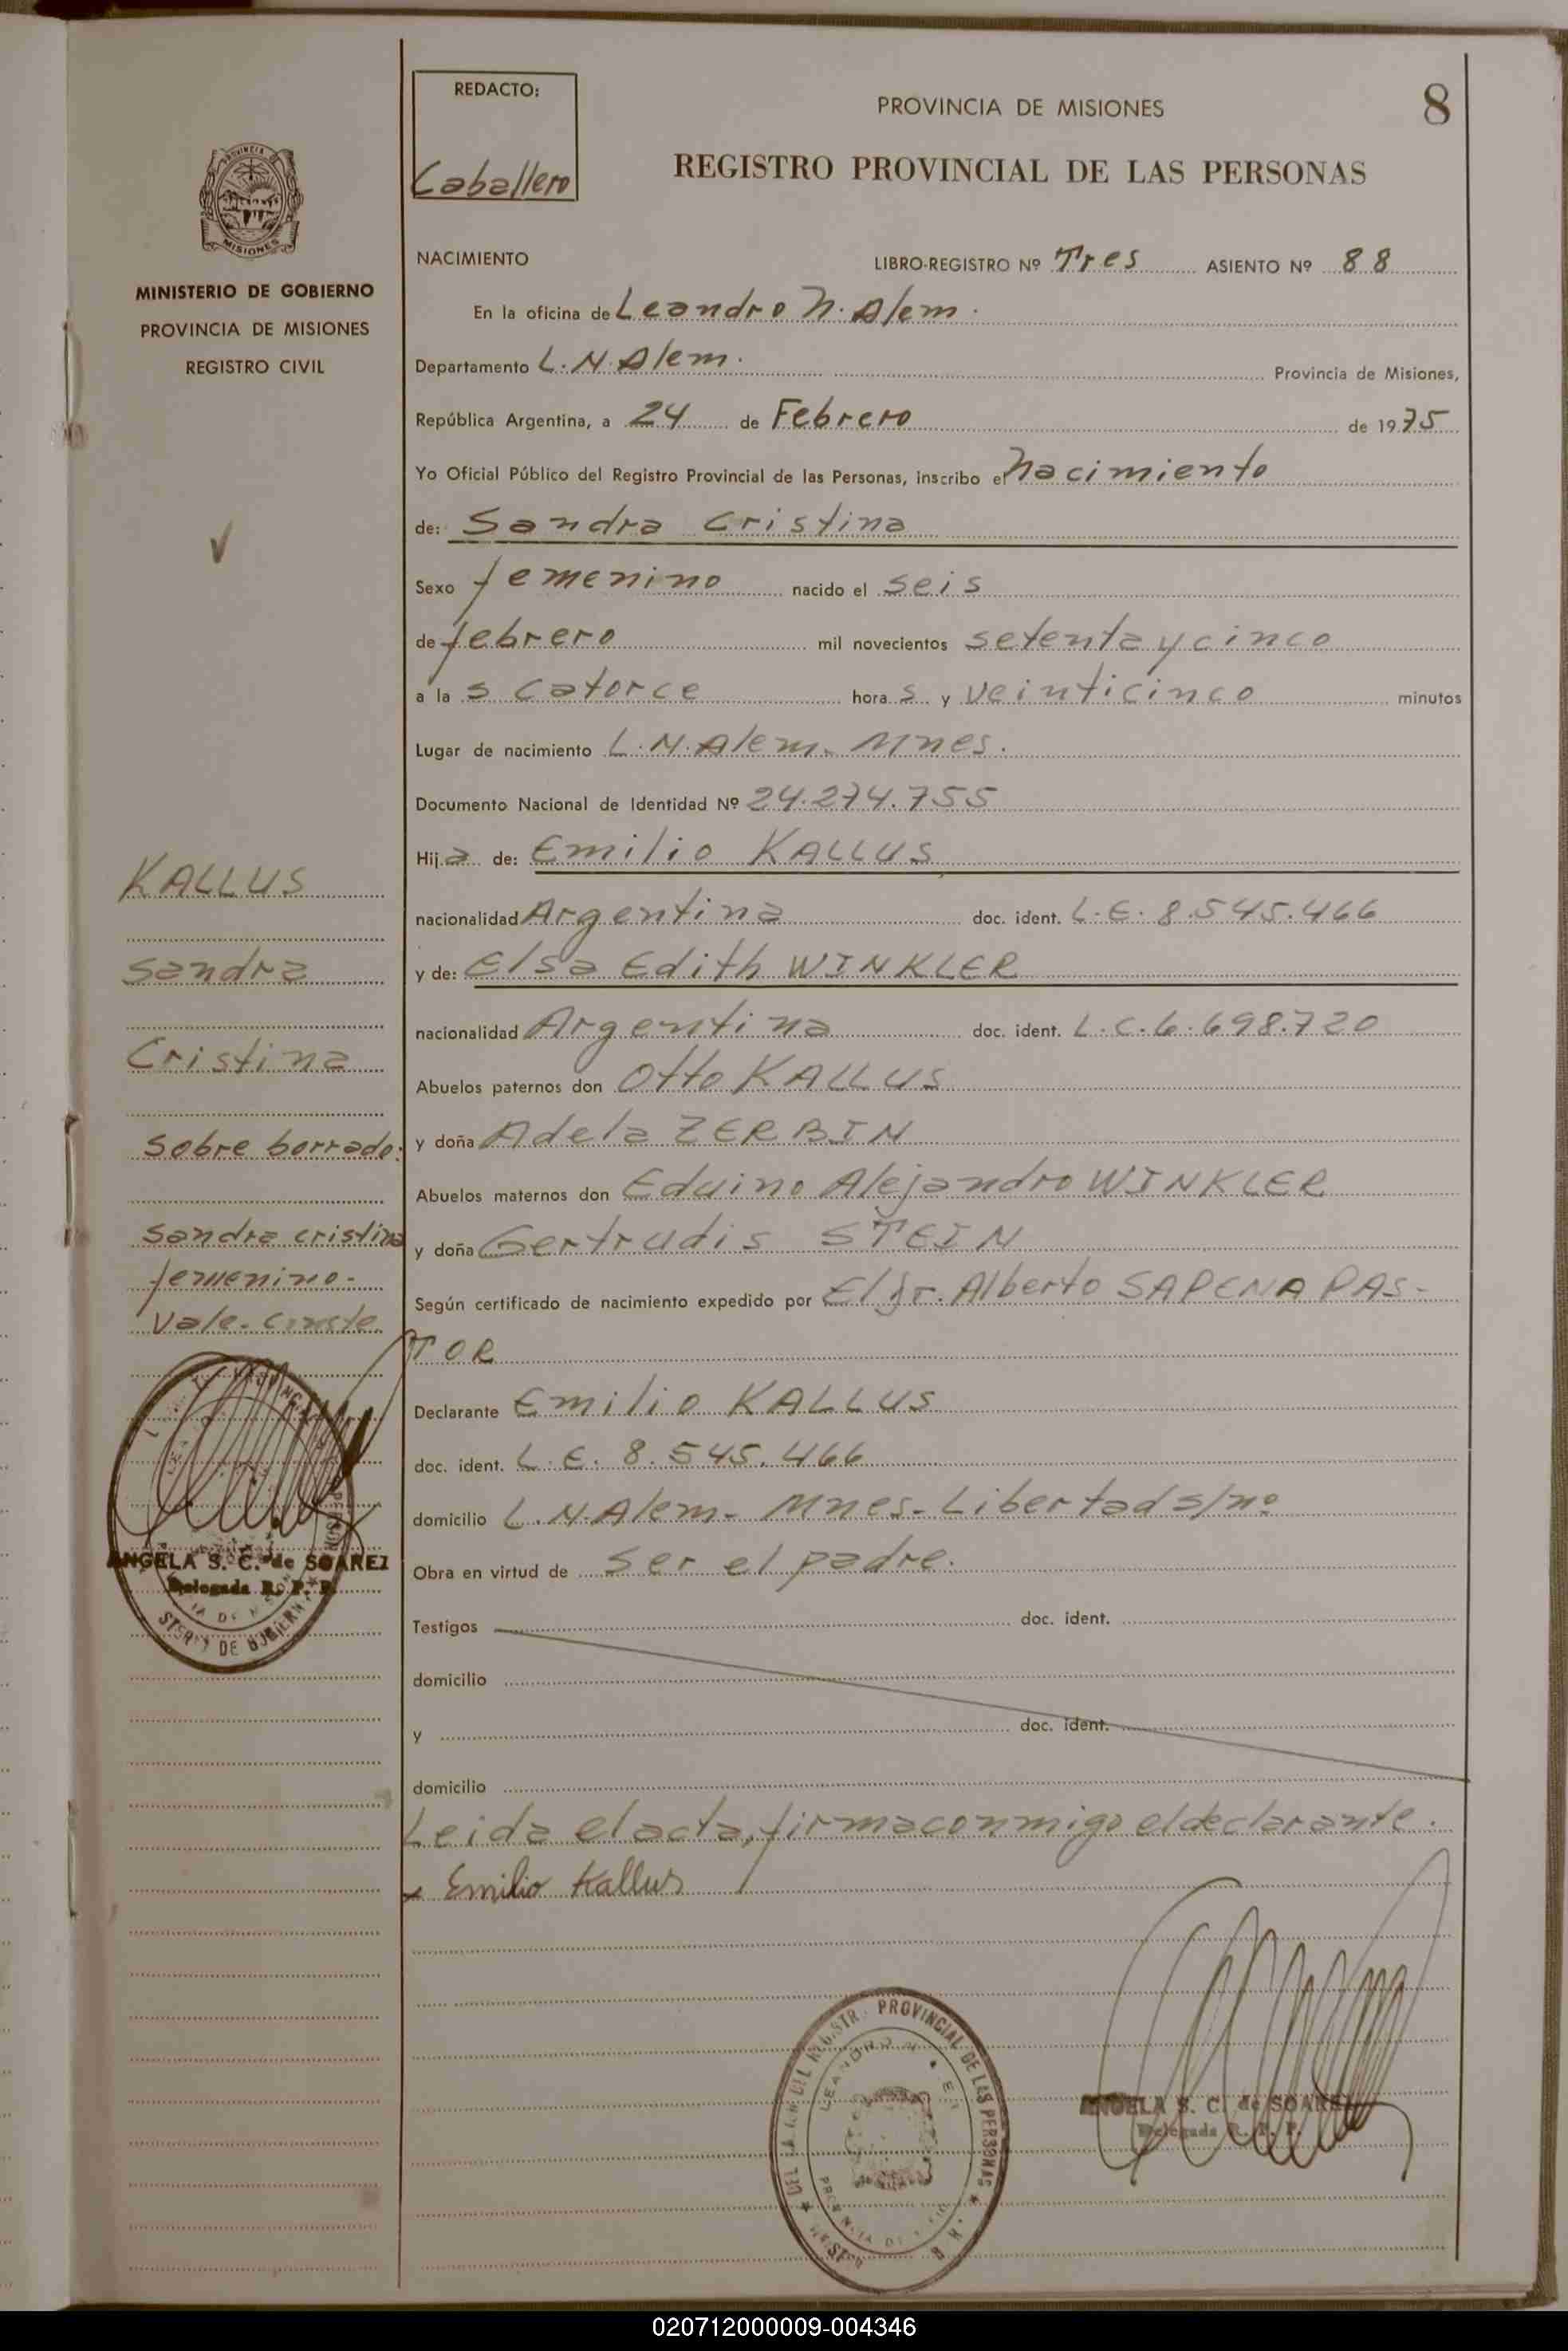 REDACTO:
Caballero
PROVINCIA DE MISIONES
8
REGISTRO PROVINCIAL DE LAS PERSONAS
MISIONES
MINISTERIO DE GOBIERNO
PROVINCIA DE MISIONES
REGISTRO CIVIL
NACIMIENTO LIBRO-REGISTRO Nº Tres ASIENTO Nº 88
En la oficina de Leandro N. Alem.
Departamento L.N.Alem. Provincia de Misiones,
República Argentina, a 24 de Febrero de 1975
Yo Oficial Público del Registro Provincial de las Personas, inscribo el Nacimiento
de: Sandra Cristina
Sexo femenino nacido el seis
de febrero mil novecientos setenta y cinco
a la s catorce hora s y veinticinco minutos
Lugar de nacimiento L.N.Alem- Mnes.
Documento Nacional de Identidad Nº 24.274.755
Hija de: Emilio KALLUS
nacionalidad Argentina doc. ident. L.E. 8.545.466
y de: Elsa Edith WINKLER
nacionalidad Argentina doc. ident. L.C. 6.698.720
Abuelos paternos don Otto KALLUS
y doña Adela ZERBIN
Abuelos maternos don Eduino Alejandro WINKLER
y doña Gertrudis STEIN
Según certificado de nacimiento expedido por El Alberto SAPENA PAS-
TOR
Declarante Emilio KALLUS
doc. ident. L.E. 8.545.466
domicilio L.N.Alem- Mnes- Libertad s/nº
Obra en virtud de ser el padre.
Testigos doc. ident.
domicilio
y doc. ident.
domicilio
Leida el acta, firma conmigo el declarante.
Emilio Kallus
KALLUS
Sandra
Cristina
Sobre borrado:
Sandra cristina
femenino-
Vale-Conste
ANGELA S. C. de SOAREZ
Delegada R. P. P.
DEL REGISTR. PROVINCIAL DE LAS PERSONAS
ANGELA S. C. de SOAREZ
Delegada R. P. P.
020712000009-004346